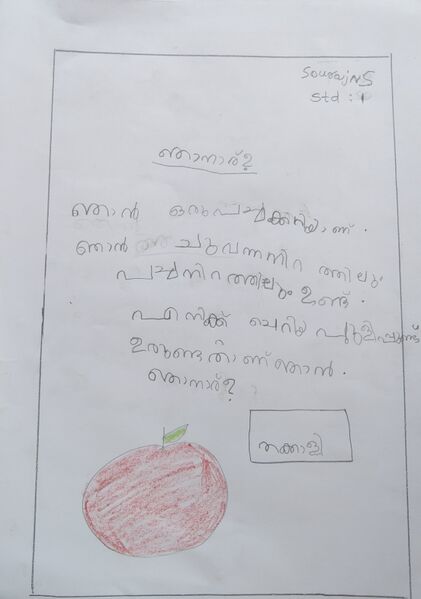 Sourajn S
Std : 1
ഞാനാര്?
ഞാൻ ഒരു പച്ചക്കറിയാണ്.
ഞാൻ ചുവന്നനിറ ത്തിലും
പച്ചനിറത്തിലും ഉണ്ട്.
എനിക്ക് ചെറിയ പുളിപ്പുണ്ട്
ഉരുണ്ടതാണ് ഞാൻ.
ഞാനാര്?
തക്കാളി